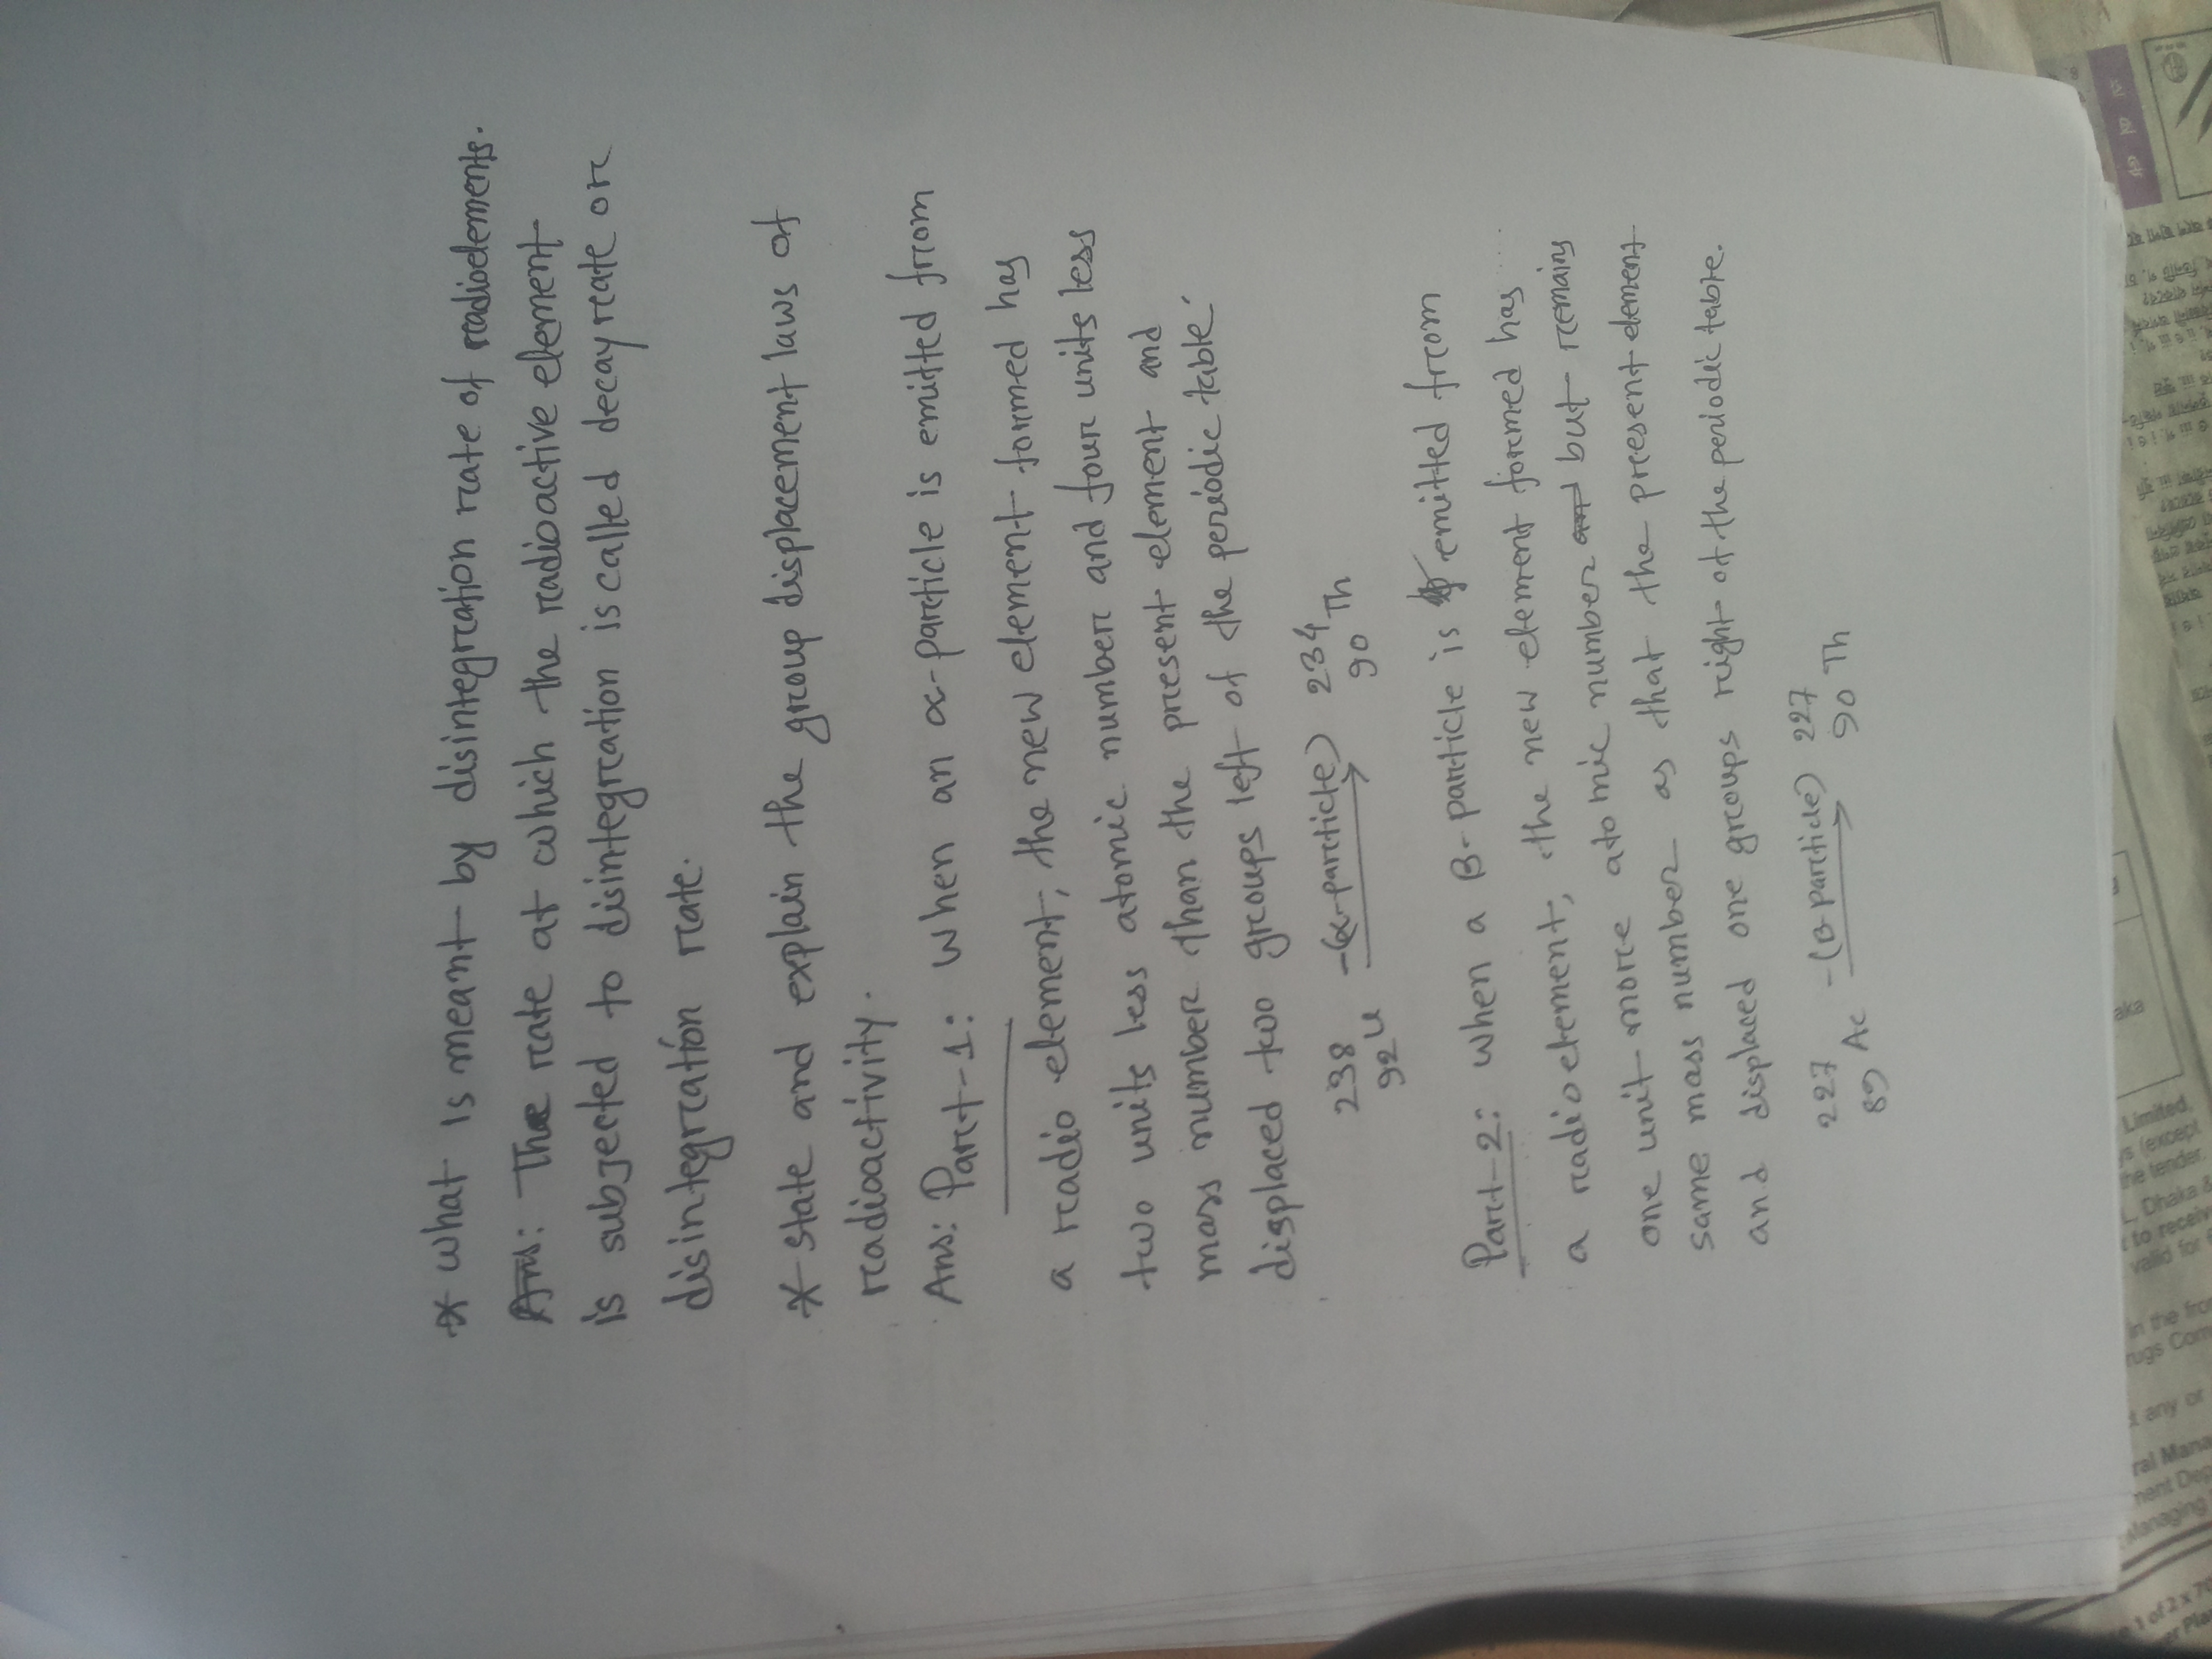 * What is meant by disintegration rate of radioelements.
Ans: The rate at which the radioactive element
is subjected to disintegration is called decay rate or
disintegration rate.
* State and explain the group displacement laws of
radioactivity.
Ans: Part-1: When an α-particle is emitted from
a radio element, the new element formed has
two units less atomic number and four units less
mass number than the present element and
displaced two groups left of the periodic table.
238 92 U -(α-particle) → 234 90 Th
Part-2: When a β-particle is emitted from
a radio element, the new element formed has
one unit more atomic number and but remains
same mass number as that the present element
and displaced one groups right of the periodic table.
227 89 Ac -(β-particle) → 227 90 Th
Limited,
(except
the tender.
Dhaka &
to receive
valid for
in the
any or